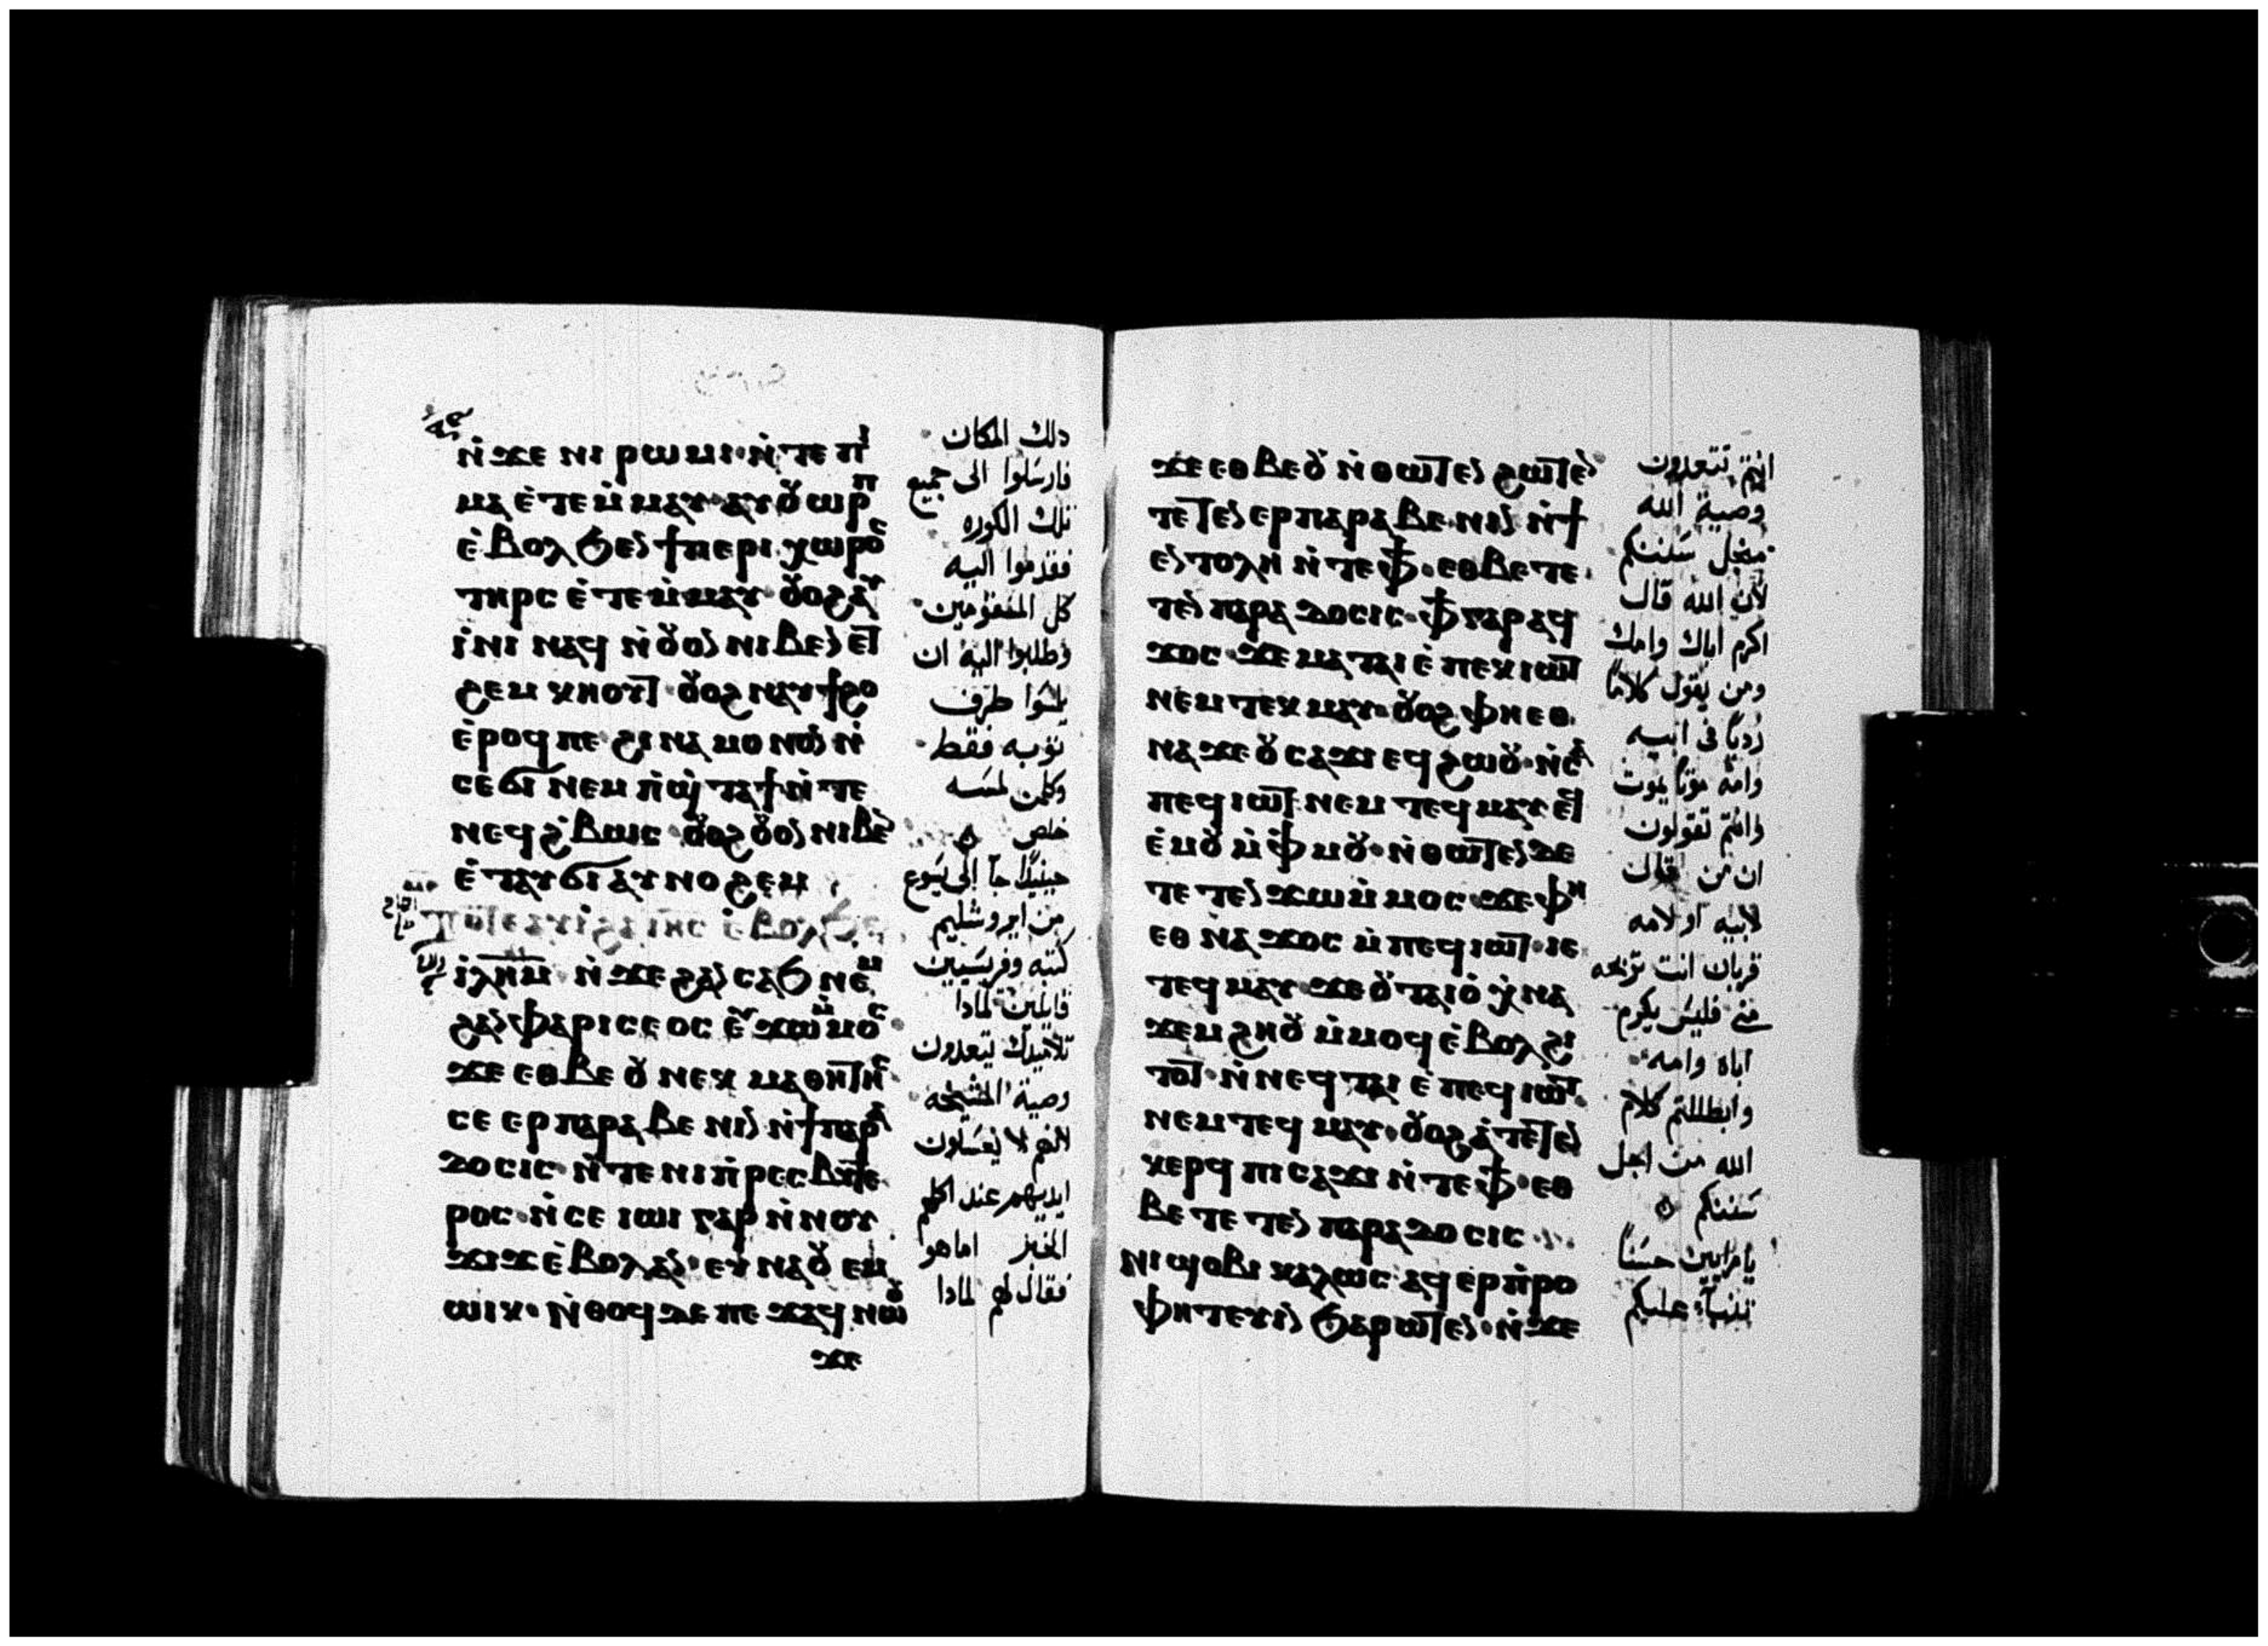 ⲛ̇ϫⲉ ⲛⲓⲣⲱⲙⲓ ⲛ̇ⲧⲉ ⲡⲓ
ⲙⲁ ⲉ̇ⲧⲉⲙ̇ⲙⲁⲩ ⲁⲩⲟⲩⲱⲣⲡ
ⲉ̇ⲃⲟⲗ ϧⲉⲛ ϯⲡⲉⲣⲓⲭⲱⲣⲟⲥ
ⲧⲏⲣⲥ ⲉ̇ⲧⲉⲙ̇ⲙⲁⲩ ⲟⲩⲟϩ ⲁⲩ
ⲓ̇ⲛⲓ ⲛⲁϥ ⲛ̇ⲟⲩⲟⲛ ⲛⲓⲃⲉⲛ ⲉⲧ
ϩⲉⲙⲕⲏⲟⲩⲧ ⲟⲩⲟϩ ⲛⲁⲩϯϩⲟ
ⲉ̇ⲣⲟϥ ⲡⲉ ϩⲓⲛⲁ ⲙⲟⲛⲟⲛ ⲛ̇
ⲥⲉϭⲓ ⲛⲉⲙ ⲡ̇ϣ̇ⲧⲁϯ ⲛ̇ⲧⲉ
ⲛⲉϥϩ̇ⲃⲱⲥ ⲟⲩⲟϩ ⲟⲩⲟⲛ ⲛⲓⲃⲉⲛ
ⲉ̇ⲧⲁⲩϭⲓ ⲁⲩⲛⲟϩⲉⲙ
ⲧⲟⲧⲉ ⲁⲩⲓ̇ ϩⲁ ⲓⲏⲥ ⲉ̇ⲃⲟⲗ ϧⲉⲛ
ⲓ̇ⲗⲏⲙ ⲛ̇ϫⲉ ϩⲁⲛⲥⲁϧ ⲛⲉⲙ
ϩⲁⲛⲫⲁⲣⲓⲥⲉⲟⲥ ⲉⲩϫⲱ ⲙ̇ⲙⲟⲥ
ϫⲉ ⲉⲑⲃⲉ ⲟⲩ ⲛⲉⲕⲙⲁⲑⲏⲧⲏⲥ
ⲥⲉⲉⲣⲡⲁⲣⲁⲃⲉⲛⲓⲛ ⲛ̇ϯⲡⲁⲣⲁ
ⲇⲟⲥⲓⲥ ⲛ̇ⲧⲉ ⲛⲓⲡ̇ⲣⲉⲥⲃⲩⲧⲉ
ⲣⲟⲥ ⲛ̇ⲥⲉⲓⲱⲓ ⲅⲁⲣ ⲛ̇ⲛⲟⲩ
ϫⲓϫ ⲉ̇ⲃⲟⲗ ⲁⲛ ⲉⲩⲛⲁⲟⲩⲉⲙ
ⲱⲓⲕ ⲛ̇ⲑⲟϥ ⲇⲉ ⲡⲉϫⲁϥ ⲛⲱⲟⲩ
ϫⲉ
دلك المكان
فارسلوا الى جميع
تلك الكوره
فقدموا اليه
كل المسقومين
وطلبوا اليه ان
يلمسوا طرف
توبه فقط
وكلمن لمسه
خلص
حينيدًا جآ الى يسوع
من ايروشليم
كتبه وفريسيين
قايلين لمادا
تلاميدك يتعدون
وصية المشيخه
لانهم لا يغسلون
ايديهم عند اكلهم
الخبز اما هو
فقال لهم لمادا
ϫⲉ ⲉⲑⲃⲉ ⲟⲩ ⲛ̇ⲑⲱⲧⲉⲛ ϩⲱⲧⲉⲛ
ⲧⲉⲧⲉⲛⲉⲣⲡⲁⲣⲁⲃⲉⲛⲓⲛ ⲛ̇ϯ
ⲉⲛⲧⲟⲗⲏ ⲛ̇ⲧⲉ ⲫϯ ⲉⲑⲃⲉ ⲧⲉ
ⲧⲉⲛⲡⲁⲣⲁⲇⲟⲥⲓⲥ ⲫϯ ⲅⲁⲣ ⲁϥ
ϫⲟⲥ ϫⲉ ⲙⲁⲧⲁⲓⲉ̇ ⲡⲉⲕⲓⲱⲧ
ⲛⲉⲙ ⲧⲉⲕⲙⲁⲩ ⲟⲩⲟϩ ⲫⲏⲉⲑ
ⲛⲁϫⲉ ⲟⲩⲥⲁϫⲓ ⲉϥϩⲱⲟⲩ ⲛ̇ⲥⲁ
ⲡⲉϥⲓⲱⲧ ⲛⲉⲙ ⲧⲉϥⲙⲁⲩ ⲉϥⲉ̇
ⲉ̇ⲙⲟⲩ ⲙ̇ⲫ̇ⲙⲟⲩ ⲛ̇ⲑⲱⲧⲉⲛ ⲇⲉ
ⲧⲉⲧⲉⲛϫⲱ ⲙ̇ⲙⲟⲥ ϫⲉ ⲫⲏ
ⲉⲑⲛⲁϫⲟⲥ ⲙ̇ⲡⲉϥⲓⲱⲧ ⲓⲉ
ⲧⲉϥⲙⲁⲩ ϫⲉ ⲟⲩⲧⲁⲓⲟ̇ ⲭ̇ⲛⲁ
ϫⲉⲙϩⲏⲟⲩ ⲙ̇ⲙⲟϥ ⲉ̇ⲃⲟⲗ ϩⲓ
ⲧⲟⲧ ⲛ̇ⲛⲉϥⲧⲁⲓⲉ̇ ⲡⲉϥⲓⲱⲧ
ⲛⲉⲙ ⲧⲉϥⲙⲁⲩ ⲟⲩⲟϩ ⲁ̇ⲧⲉⲧⲉⲛ
ⲕⲉⲣϥ ⲡⲓⲥⲁϫⲓ ⲛ̇ⲧⲉ ⲫϯ ⲉⲑ
ⲃⲉ ⲧⲉⲧⲉⲛⲡⲁⲣⲁⲇⲟⲥⲓⲥ
ⲛⲓϣⲟⲃⲓ ⲕⲁⲗⲱⲥ ⲁϥⲉⲣⲡ̇ⲣⲟ
ⲫⲏⲧⲉⲩⲓⲛ ϧⲁⲣⲱⲧⲉⲛ ⲛ̇ϫⲉ
انتم تتعدون
وصية الله
منجل سنتكم
لان الله قال
اكرم اباك وامك
ومن يقول كلامًا
رديًا فى ابيه
وامه موتًا يموت
وانتم تقولون
ان من قال
لابيه او لامه
قربان انت تربحه
منى فليس يكرم
اباه وامه
وابطللتم كلام
الله من اجل
سنتكم
يا مرايين حسنًا
تنبآء عليكم